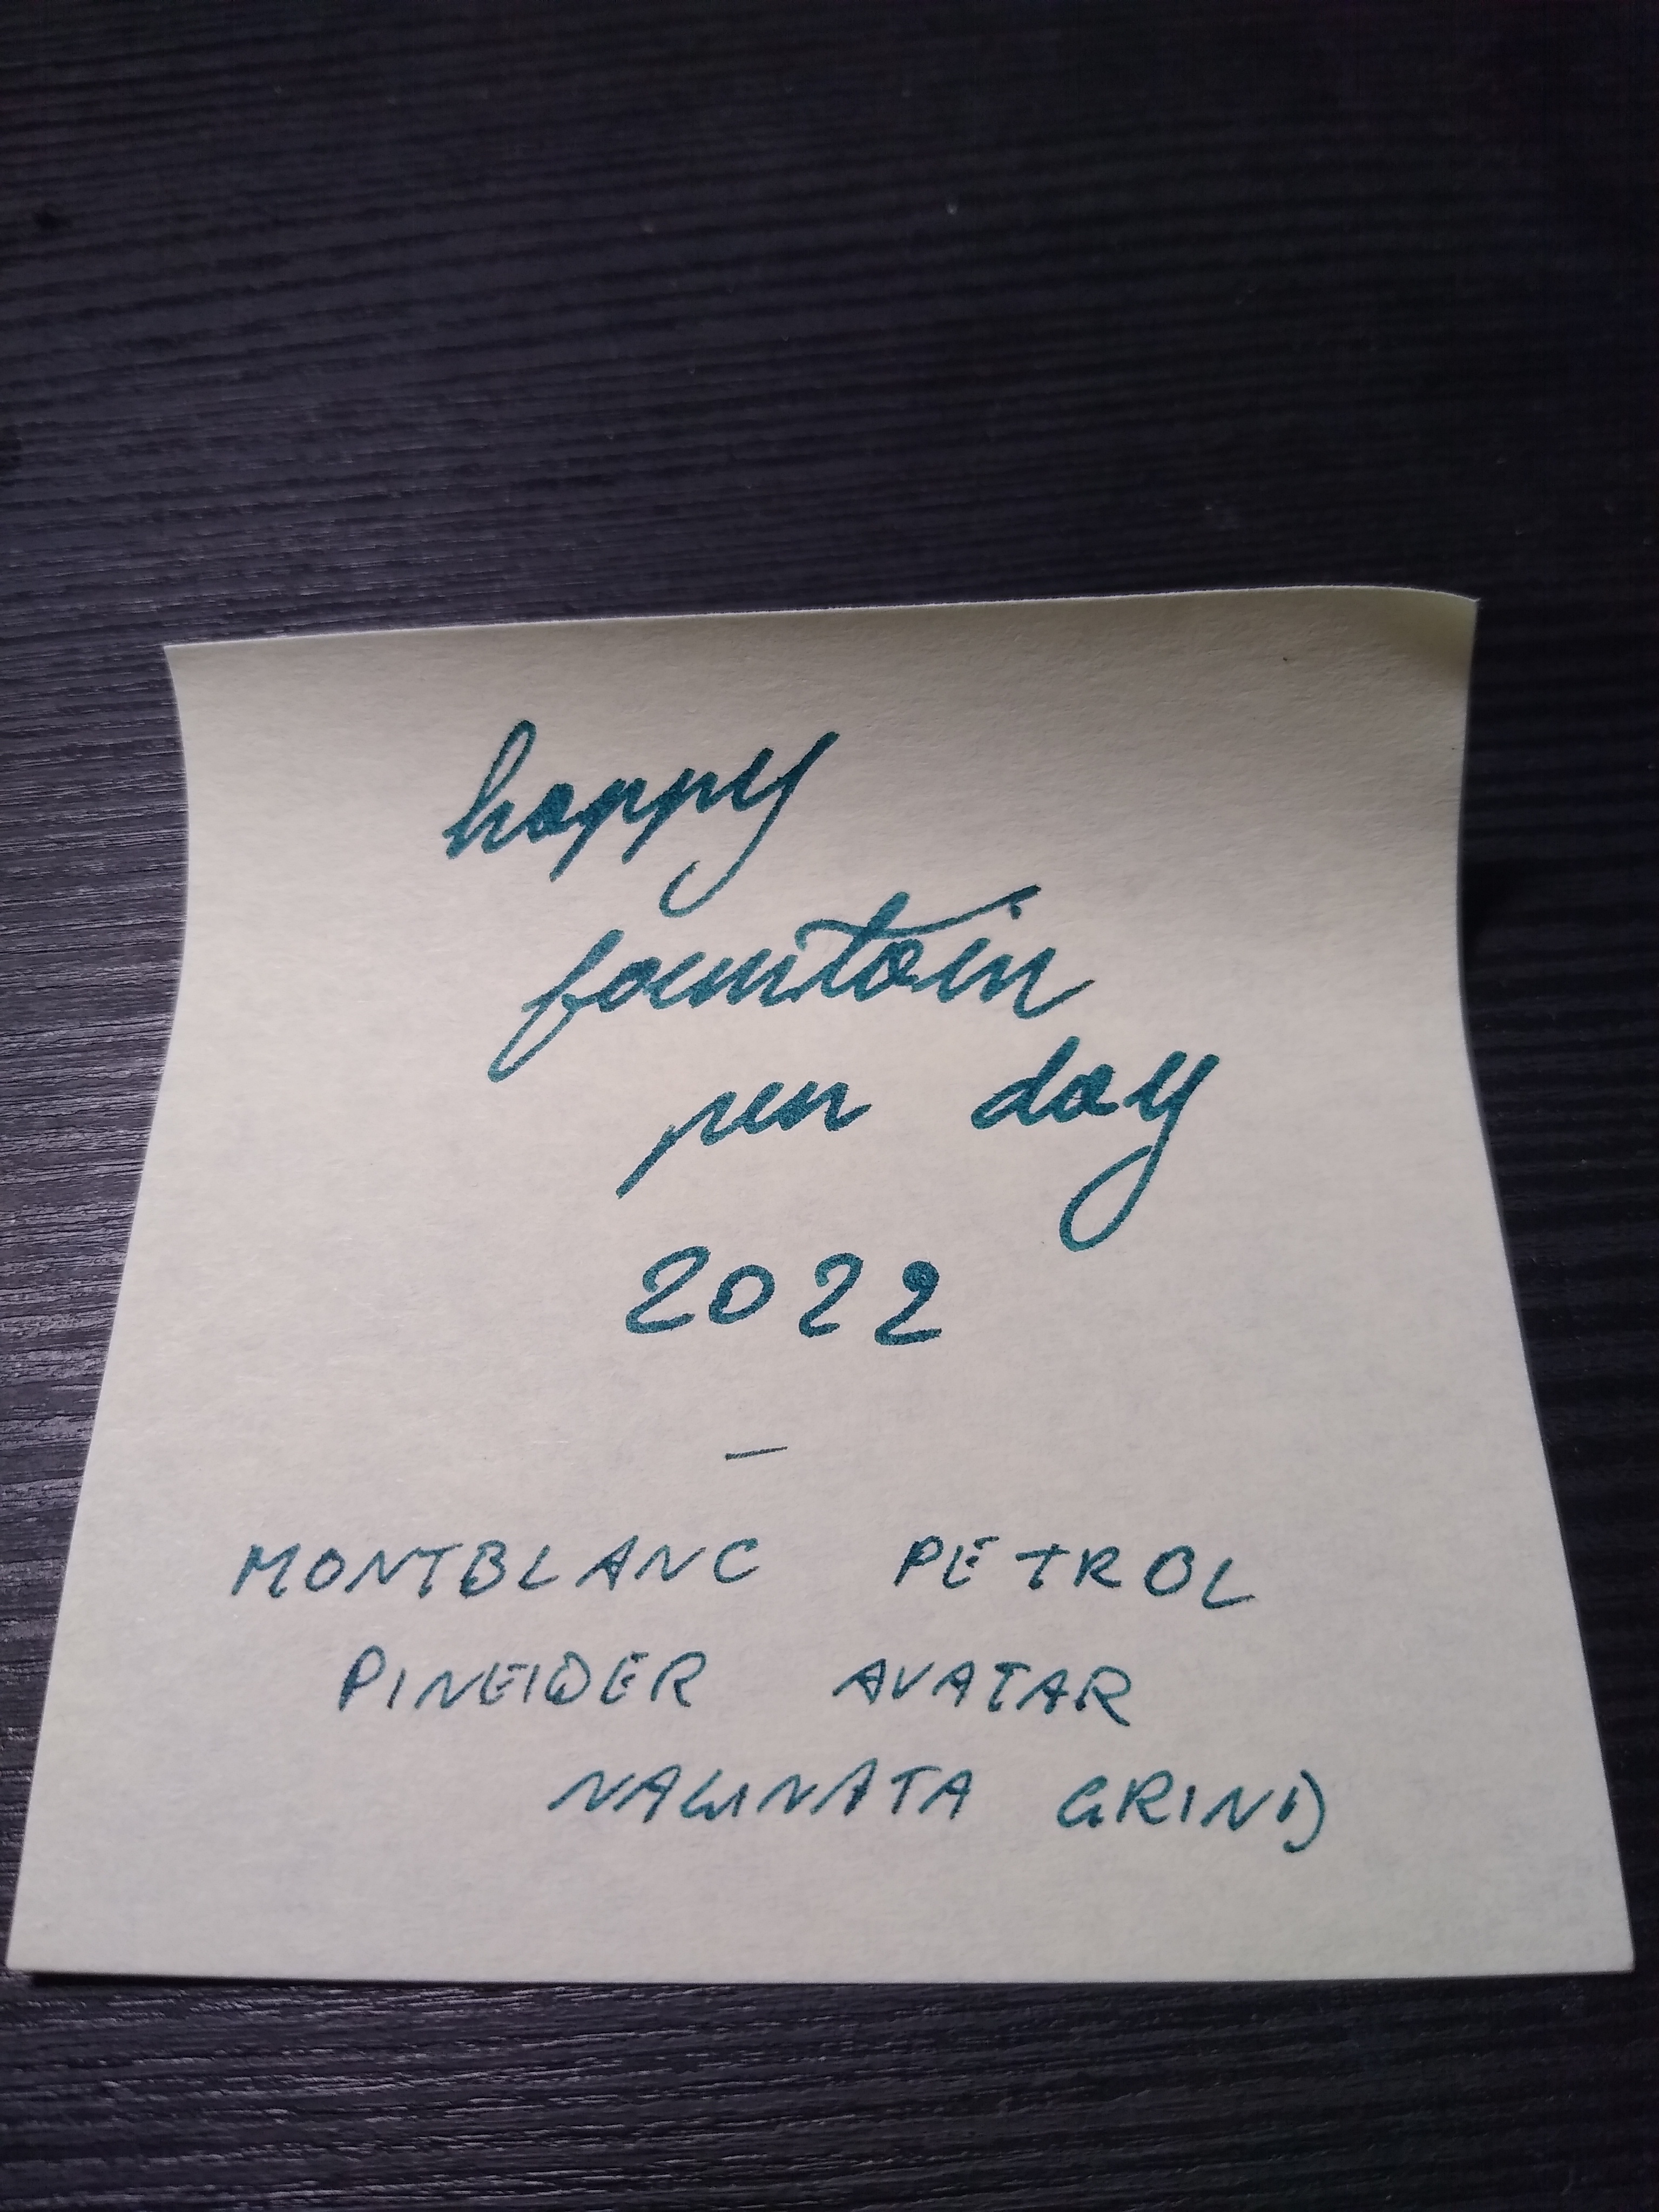 happy
fountain
pen day
2022
—
MONTBLANC PETROL
PINEIDER AVATAR
NAGINATA GRIND